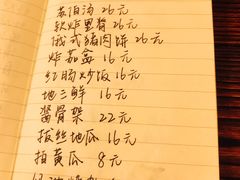 苏泊汤 26元
软炸里脊 26元
俄式猪肉饼 26元
炸茄盒 16元
红肠炒饭 16元
地三鲜 16元
酱骨架 22元
拔丝地瓜 16元
拍黄瓜 8元